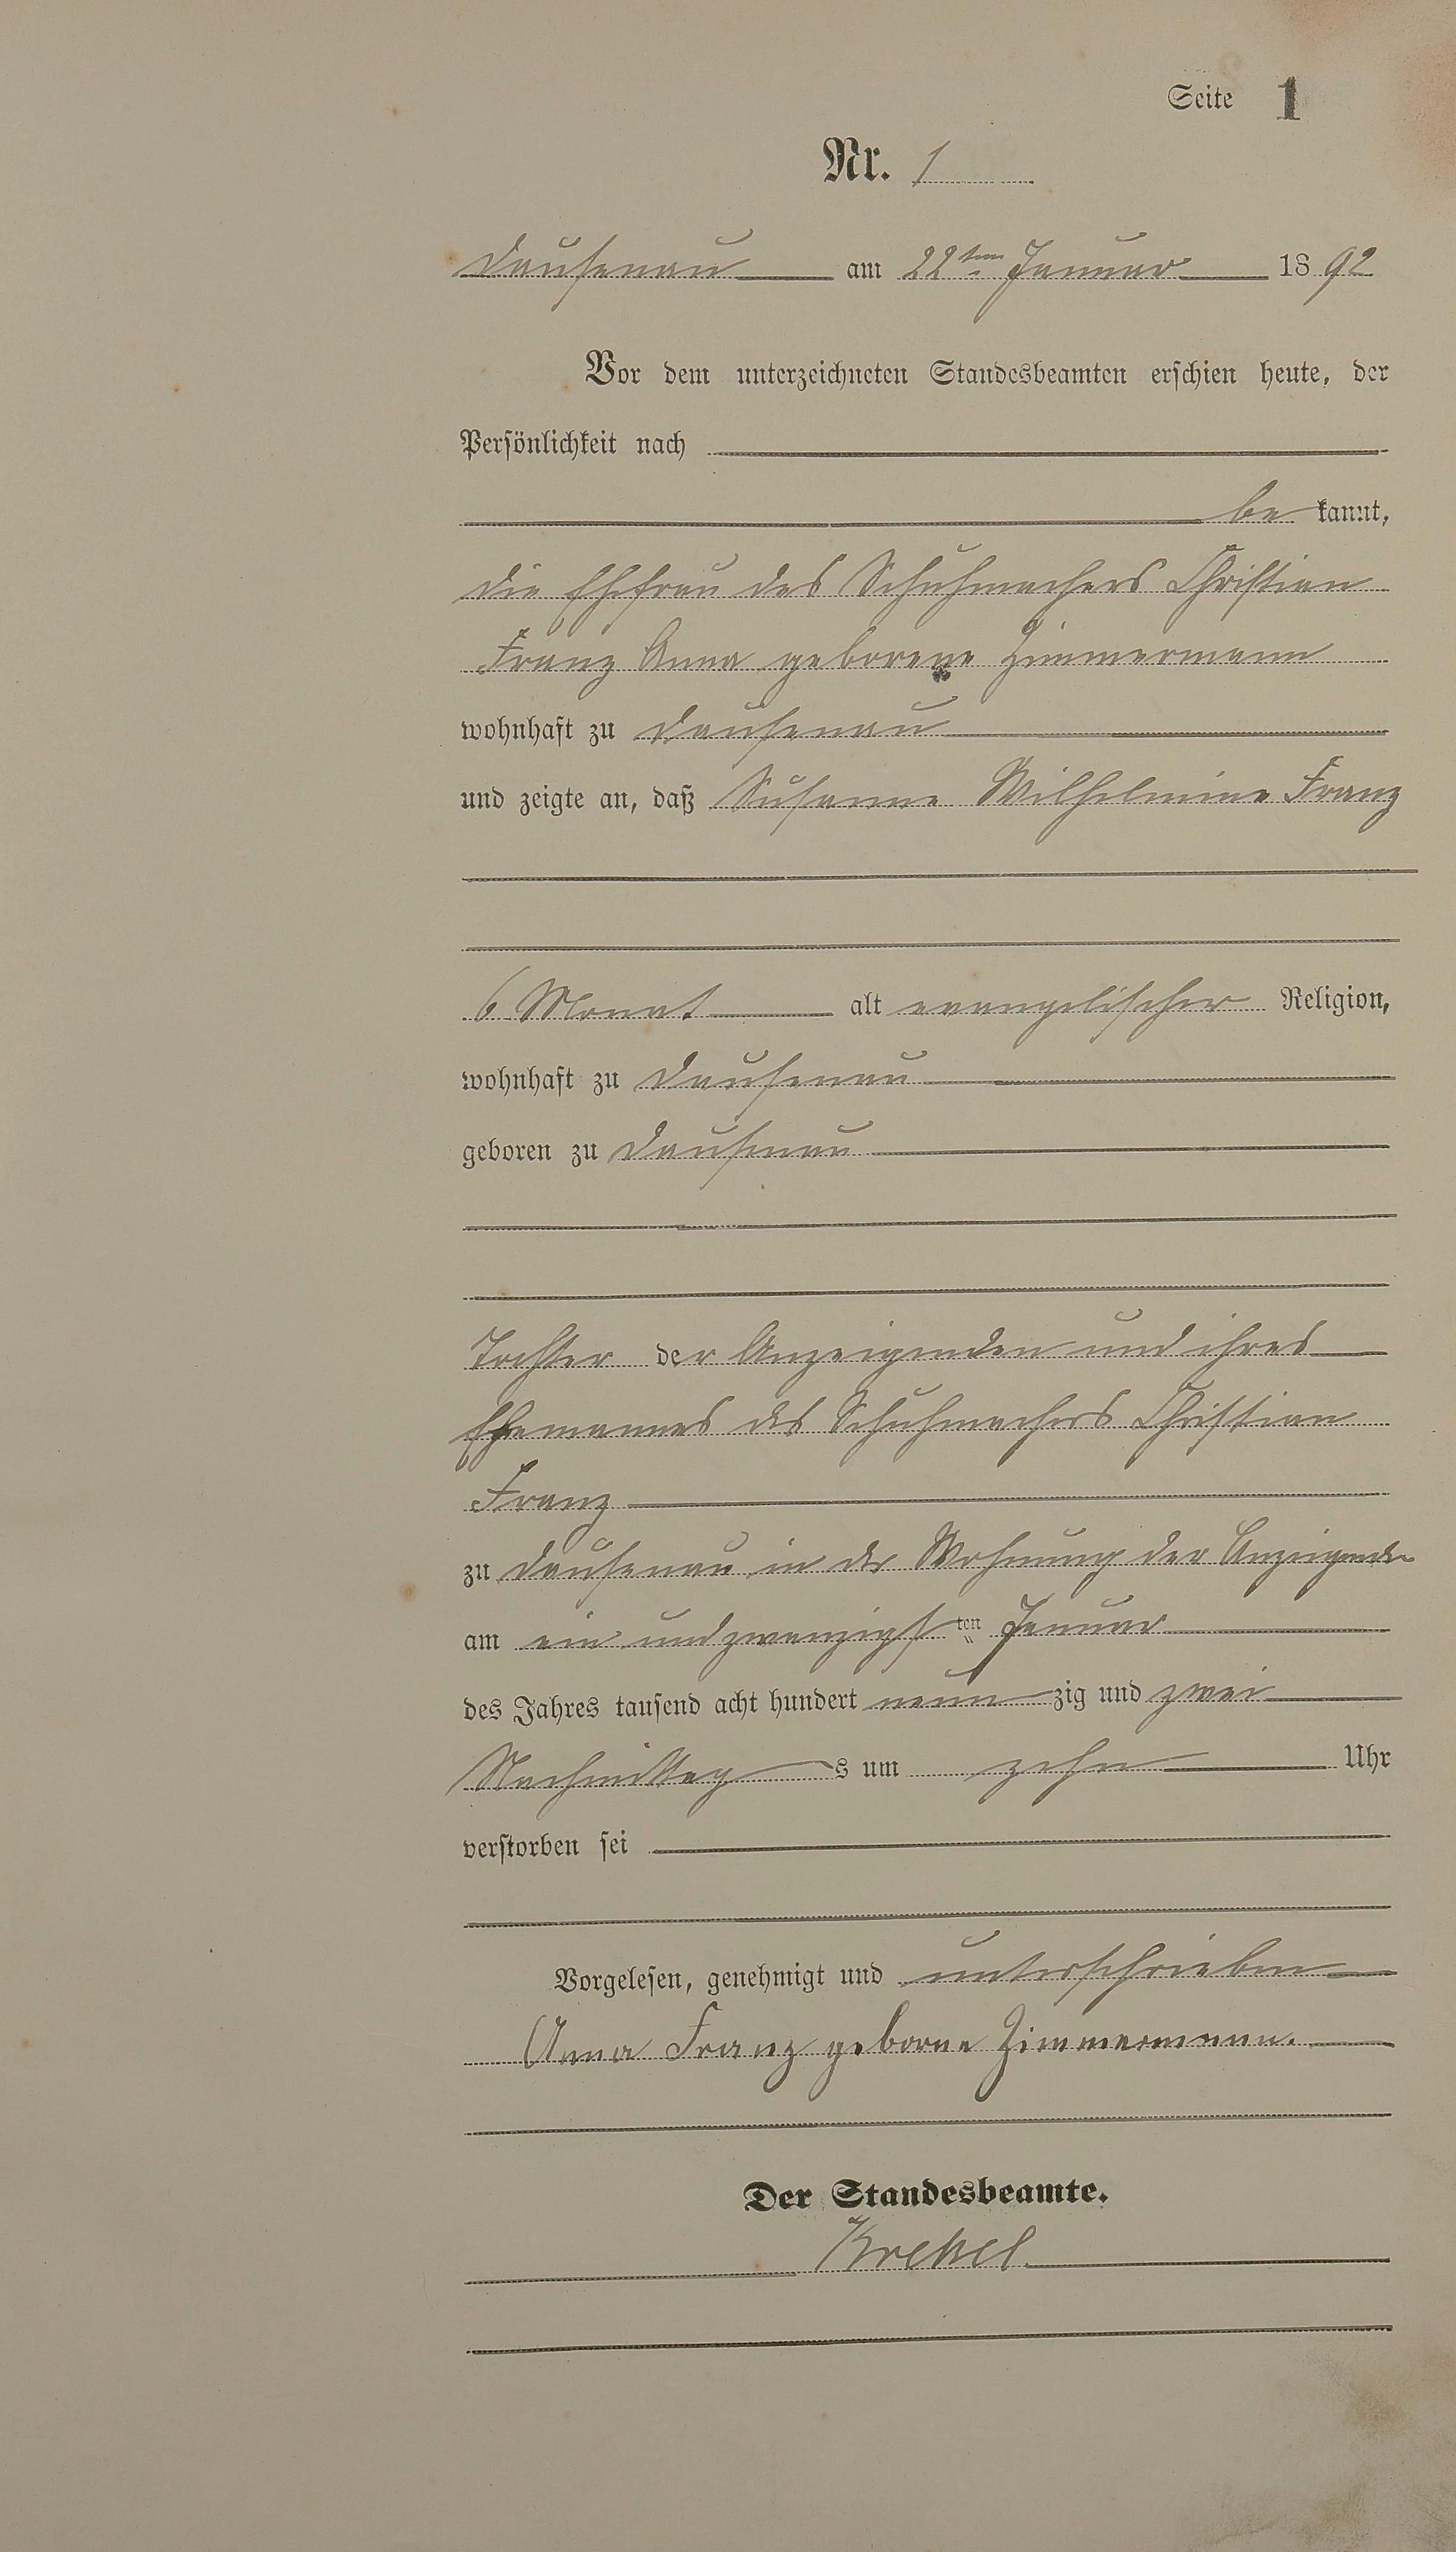 Seite 1
Nr. 1
Dausenau am 22ten Januar 1892
Vor dem unterzeichneten Standesbeamten erschien heute, der
Persönlichkeit nach
be kannt,
die Ehefrau des Schuhmachers Christian
Franz Anna geborene Zimmermann
wohnhaft zu Dausenau
und zeigte an, daß Susanne Wilhelmine Franz
6 Monat alt evangelischer Religion,
wohnhaft zu Dausenau
geboren zu Dausenau
Tochter der Anzeigenden und ihres
Ehemannes des Schuhmachers Christian
Franz
zu Dausenau in der Wohnung der Anzeigenden
am ein und zwanzigsten Januar
des Jahres tausend acht hundert neunzig und zwei
Nachmittags um zehn Uhr
verstorben sei
Vorgelesen, genehmigt und unterschrieben
Anna Franz geborne Zimmermann.
Der Standesbeamte.
Krekel